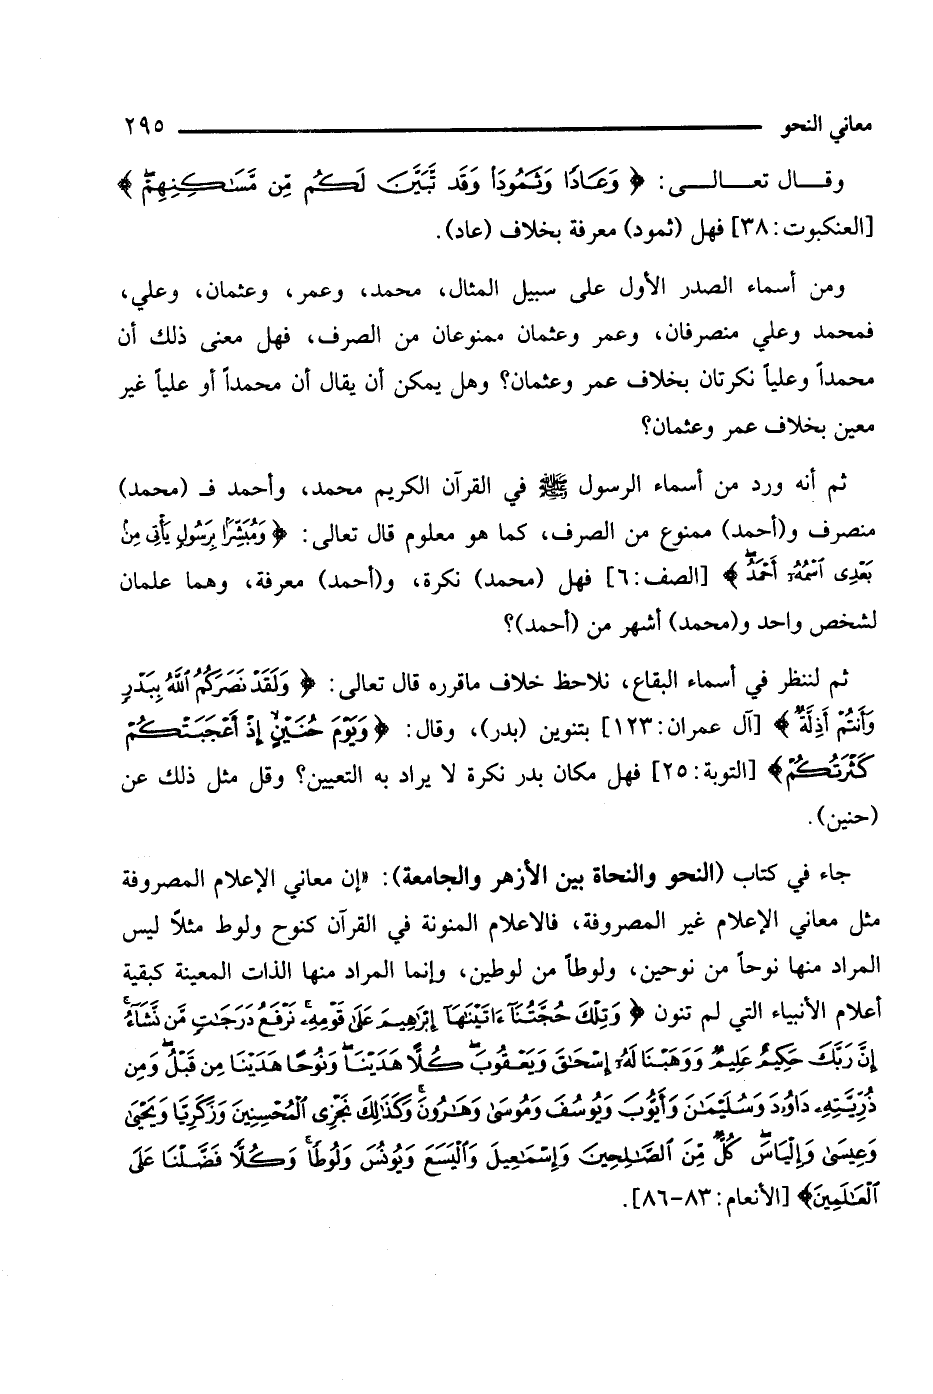 معاني النحو ٢٩٥
وقـــال تعـــالـــى: ﴿ وَعَادًا وَثَمُودَا وَقَد تَّبَيَّنَ لَكُم مِّن مَّسَٰكِنِهِمْ ﴾
[العنكبوت: ٣٨] فهل (ثمود) معرفة بخلاف (عاد).
ومن أسماء الصدر الأول على سبيل المثال، محمد، وعمر، وعثمان، وعلي،
فمحمد وعلي منصرفان، وعمر وعثمان ممنوعان من الصرف، فهل معنى ذلك أن
محمداً وعلياً نكرتان بخلاف عمر وعثمان؟ وهل يمكن أن يقال أن محمداً أو علياً غير
معين بخلاف عمر وعثمان؟
ثم أنه ورد من أسماء الرسول ﷺ في القرآن الكريم محمد، وأحمد فـ (محمد)
منصرف و(أحمد) ممنوع من الصرف، كما هو معلوم قال تعالى: ﴿ وَمُبَشِّرًا بِرَسُولٍ يَأْتِى مِنۢ
بَعْدِى ٱسْمُهُۥٓ أَحْمَدُ ﴾ [الصف: ٦] فهل (محمد) نكرة، و(أحمد) معرفة، وهما علمان
لشخص واحد و(محمد) أشهر من (أحمد)؟
ثم لننظر في أسماء البقاع، نلاحظ خلاف ماقرره قال تعالى: ﴿ وَلَقَدْ نَصَرَكُمُ ٱللَّهُ بِبَدْرٍ
وَأَنتُمْ أَذِلَّةٌ ﴾ [آل عمران: ١٢٣] بتنوين (بدر)، وقال: ﴿ وَيَوْمَ حُنَيْنٍ إِذْ أَعْجَبَتْكُمْ
كَثْرَتُكُمْ ﴾ [التوبة: ٢٥] فهل مكان بدر نكرة لا يراد به التعيين؟ وقل مثل ذلك عن
(حنين).
جاء في كتاب (النحو والنحاة بين الأزهر والجامعة): «إن معاني الإعلام المصروفة
مثل معاني الإعلام غير المصروفة، فالاعلام المنونة في القرآن كنوح ولوط مثلاً ليس
المراد منها نوحاً من نوحين، ولوطاً من لوطين، وإنما المراد منها الذات المعينة كبقية
أعلام الأنبياء التي لم تنون ﴿ وَتِلْكَ حُجَّتُنَآ ءَاتَيْنَٰهَآ إِبْرَٰهِيمَ عَلَىٰ قَوْمِهِۦ نَرْفَعُ دَرَجَٰتٍ مَّن نَّشَآءُ
إِنَّ رَبَّكَ حَكِيمٌ عَلِيمٌ وَوَهَبْنَا لَهُۥٓ إِسْحَٰقَ وَيَعْقُوبَ كُلًّا هَدَيْنَا وَنُوحًا هَدَيْنَا مِن قَبْلُ وَمِن
ذُرِّيَّتِهِۦ دَاوُۥدَ وَسُلَيْمَٰنَ وَأَيُّوبَ وَيُوسُفَ وَمُوسَىٰ وَهَٰرُونَ وَكَذَٰلِكَ نَجْزِى ٱلْمُحْسِنِينَ وَزَكَرِيَّا وَيَحْيَىٰ
وَعِيسَىٰ وَإِلْيَاسَ كُلٌّ مِّنَ ٱلصَّٰلِحِينَ وَإِسْمَٰعِيلَ وَٱلْيَسَعَ وَيُونُسَ وَلُوطًا وَكُلًّا فَضَّلْنَا عَلَى
ٱلْعَٰلَمِينَ ﴾ [الأنعام: ٨٣-٨٦].